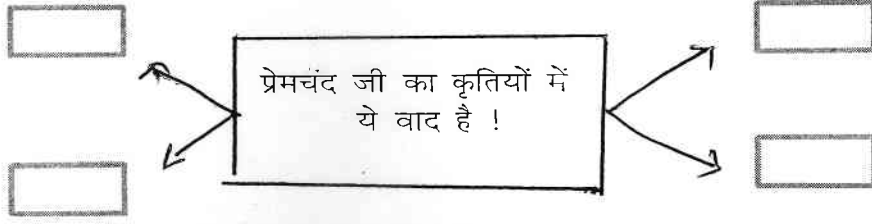 प्रेमचंद जी का कृतियों में
ये वाद है !